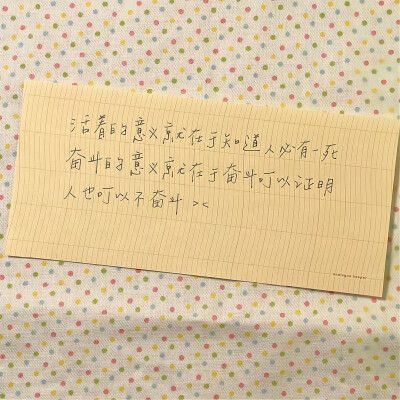 活着的意义就在于知道人必有一死
奋斗的意义就在于奋斗可以证明
人也可以不奋斗 ><